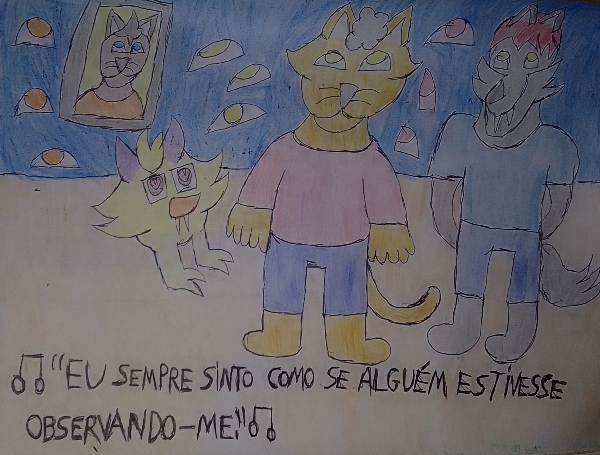 ♫ "EU SEMPRE SINTO COMO SE ALGUÉM ESTIVESSE
OBSERVANDO-ME." ♫